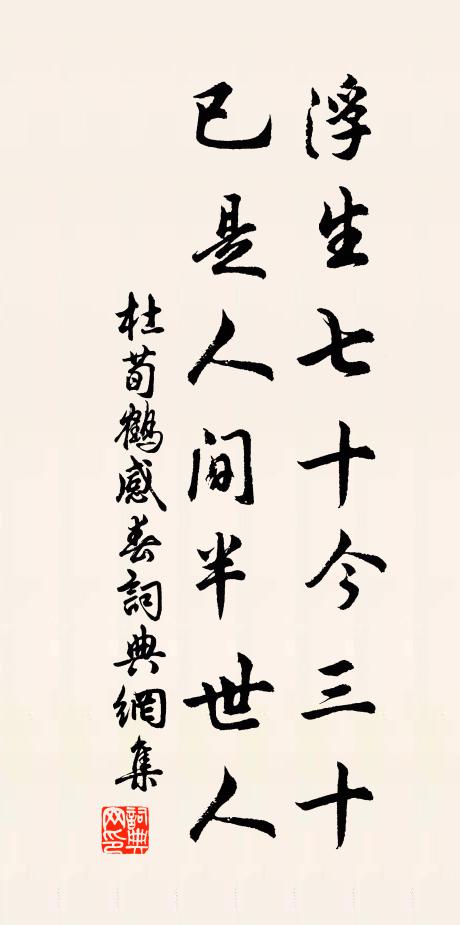 浮生七十今三十
已是人間半世人
杜荀鶴感春詞典網集
詞典网印